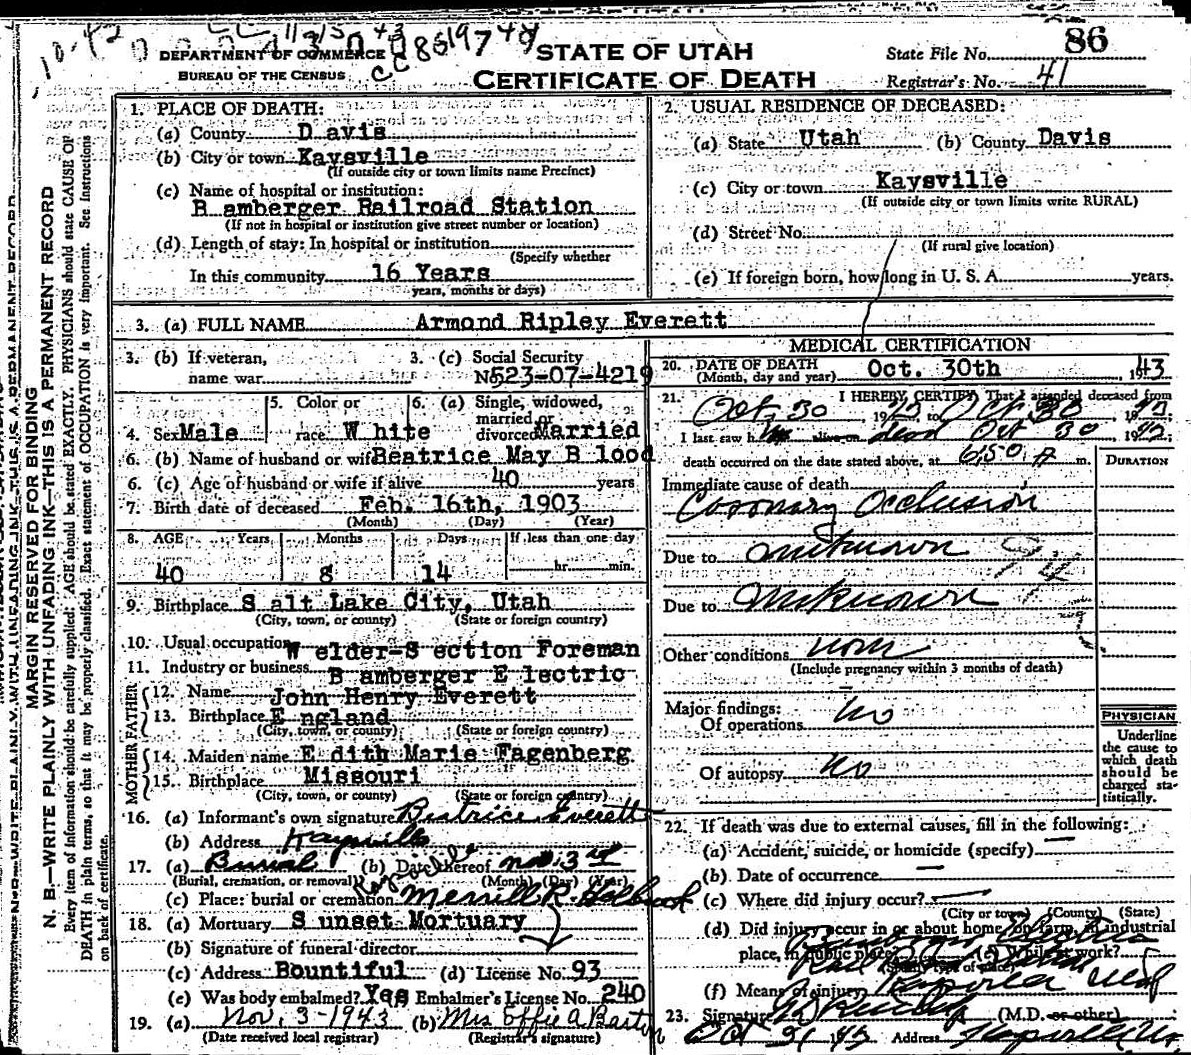 DEPARTMENT OF COMMERCE
BUREAU OF THE CENSUS
STATE OF UTAH
CERTIFICATE OF DEATH
State File No. 86
Registrar's No. 41
MARGIN RESERVED FOR BINDING
N. B.—WRITE PLAINLY WITH UNFADING INK—THIS IS A PERMANENT RECORD
Every item of information should be carefully supplied. AGE should be stated EXACTLY. PHYSICIANS should state CAUSE OF
DEATH in plain terms, so that it may be properly classified. Exact statement of OCCUPATION is very important. See Instructions
on back of certificate.
1. PLACE OF DEATH:
(a) County D avis
(b) City or town Kaysville
(If outside city or town limits name Precinct)
(c) Name of hospital or institution:
B amberger Railroad Station
(If not in hospital or institution give street number or location)
(d) Length of stay: In hospital or institution
(Specify whether
In this community 16 Years
years, months or days)
2. USUAL RESIDENCE OF DECEASED:
(a) State Utah (b) County Davis
(c) City or town Kaysville
(If outside city or town limits write RURAL)
(d) Street No.
(If rural give location)
(e) If foreign born, how long in U. S. A. years.
3. (a) FULL NAME Armond Ripley Everett
3. (b) If veteran, name war
3. (c) Social Security No. 523-07-4219
4. Sex Male
5. Color or race W hite
6. (a) Single, widowed, married or divorced Married
6. (b) Name of husband or wife Beatrice May B lood
6. (c) Age of husband or wife if alive 40 years
7. Birth date of deceased Feb. 16th, 1903
(Month) (Day) (Year)
8. AGE Years Months Days If less than one day
40 8 14 hr. min.
9. Birthplace S alt Lake City, Utah
(City, town, or county) (State or foreign country)
10. Usual occupation W elder-S ection Foreman
11. Industry or business B amberger E lectric
FATHER
12. Name John Henry Everett
13. Birthplace E ngland
(City, town, or county) (State or foreign country)
MOTHER
14. Maiden name E dith Marie Fagenberg
15. Birthplace Missouri
(City, town, or county) (State or foreign country)
16. (a) Informant's own signature Beatrice Everett
(b) Address Kaysville
17. (a) Burial (b) Date thereof Nov. 3rd
(Burial, cremation, or removal) (Month) (Day) (Year)
(c) Place: burial or cremation Kaysville
Merrill R. Holbrook
18. (a) Mortuary S unset Mortuary
(b) Signature of funeral director
(c) Address Bountiful (d) License No. 93
(e) Was body embalmed? Yes Embalmer's License No. 240
19. (a) Nov. 3-1943 (b) Mrs Effie A Barton
(Date received local registrar) (Registrar's signature)
MEDICAL CERTIFICATION
20. DATE OF DEATH
(Month, day and year) Oct. 30th, 1943
21. I HEREBY CERTIFY That I attended deceased from
Oct 30 1943 to Oct 30 1943
I last saw him alive on dead Oct 30 1943
death occurred on the date stated above, at 6:50 A m.
DURATION
Immediate cause of death
Coronary Occlusion
Due to unknown
Due to unknown
Other conditions none
(Include pregnancy within 3 months of death)
Major findings:
Of operations no
Of autopsy no
PHYSICIAN
Underline
the cause to
which death
should be
charged sta-
tistically.
22. If death was due to external causes, fill in the following:
(a) Accident, suicide, or homicide (specify) —
(b) Date of occurrence —
(c) Where did injury occur? —
(City or town) (County) (State)
(d) Did injury occur in or about home, on farm, in industrial
place, in public place? (e) While at work?
(Specify type of place)
(f) Means of injury
23. Signature (M.D. or other)
Oct 31 43 Address Kaysville Ut.